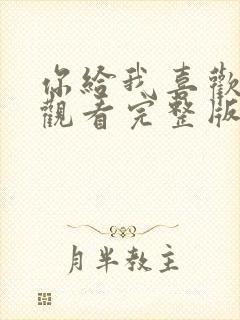 你給我喜歡
觀看完整版
月半教主